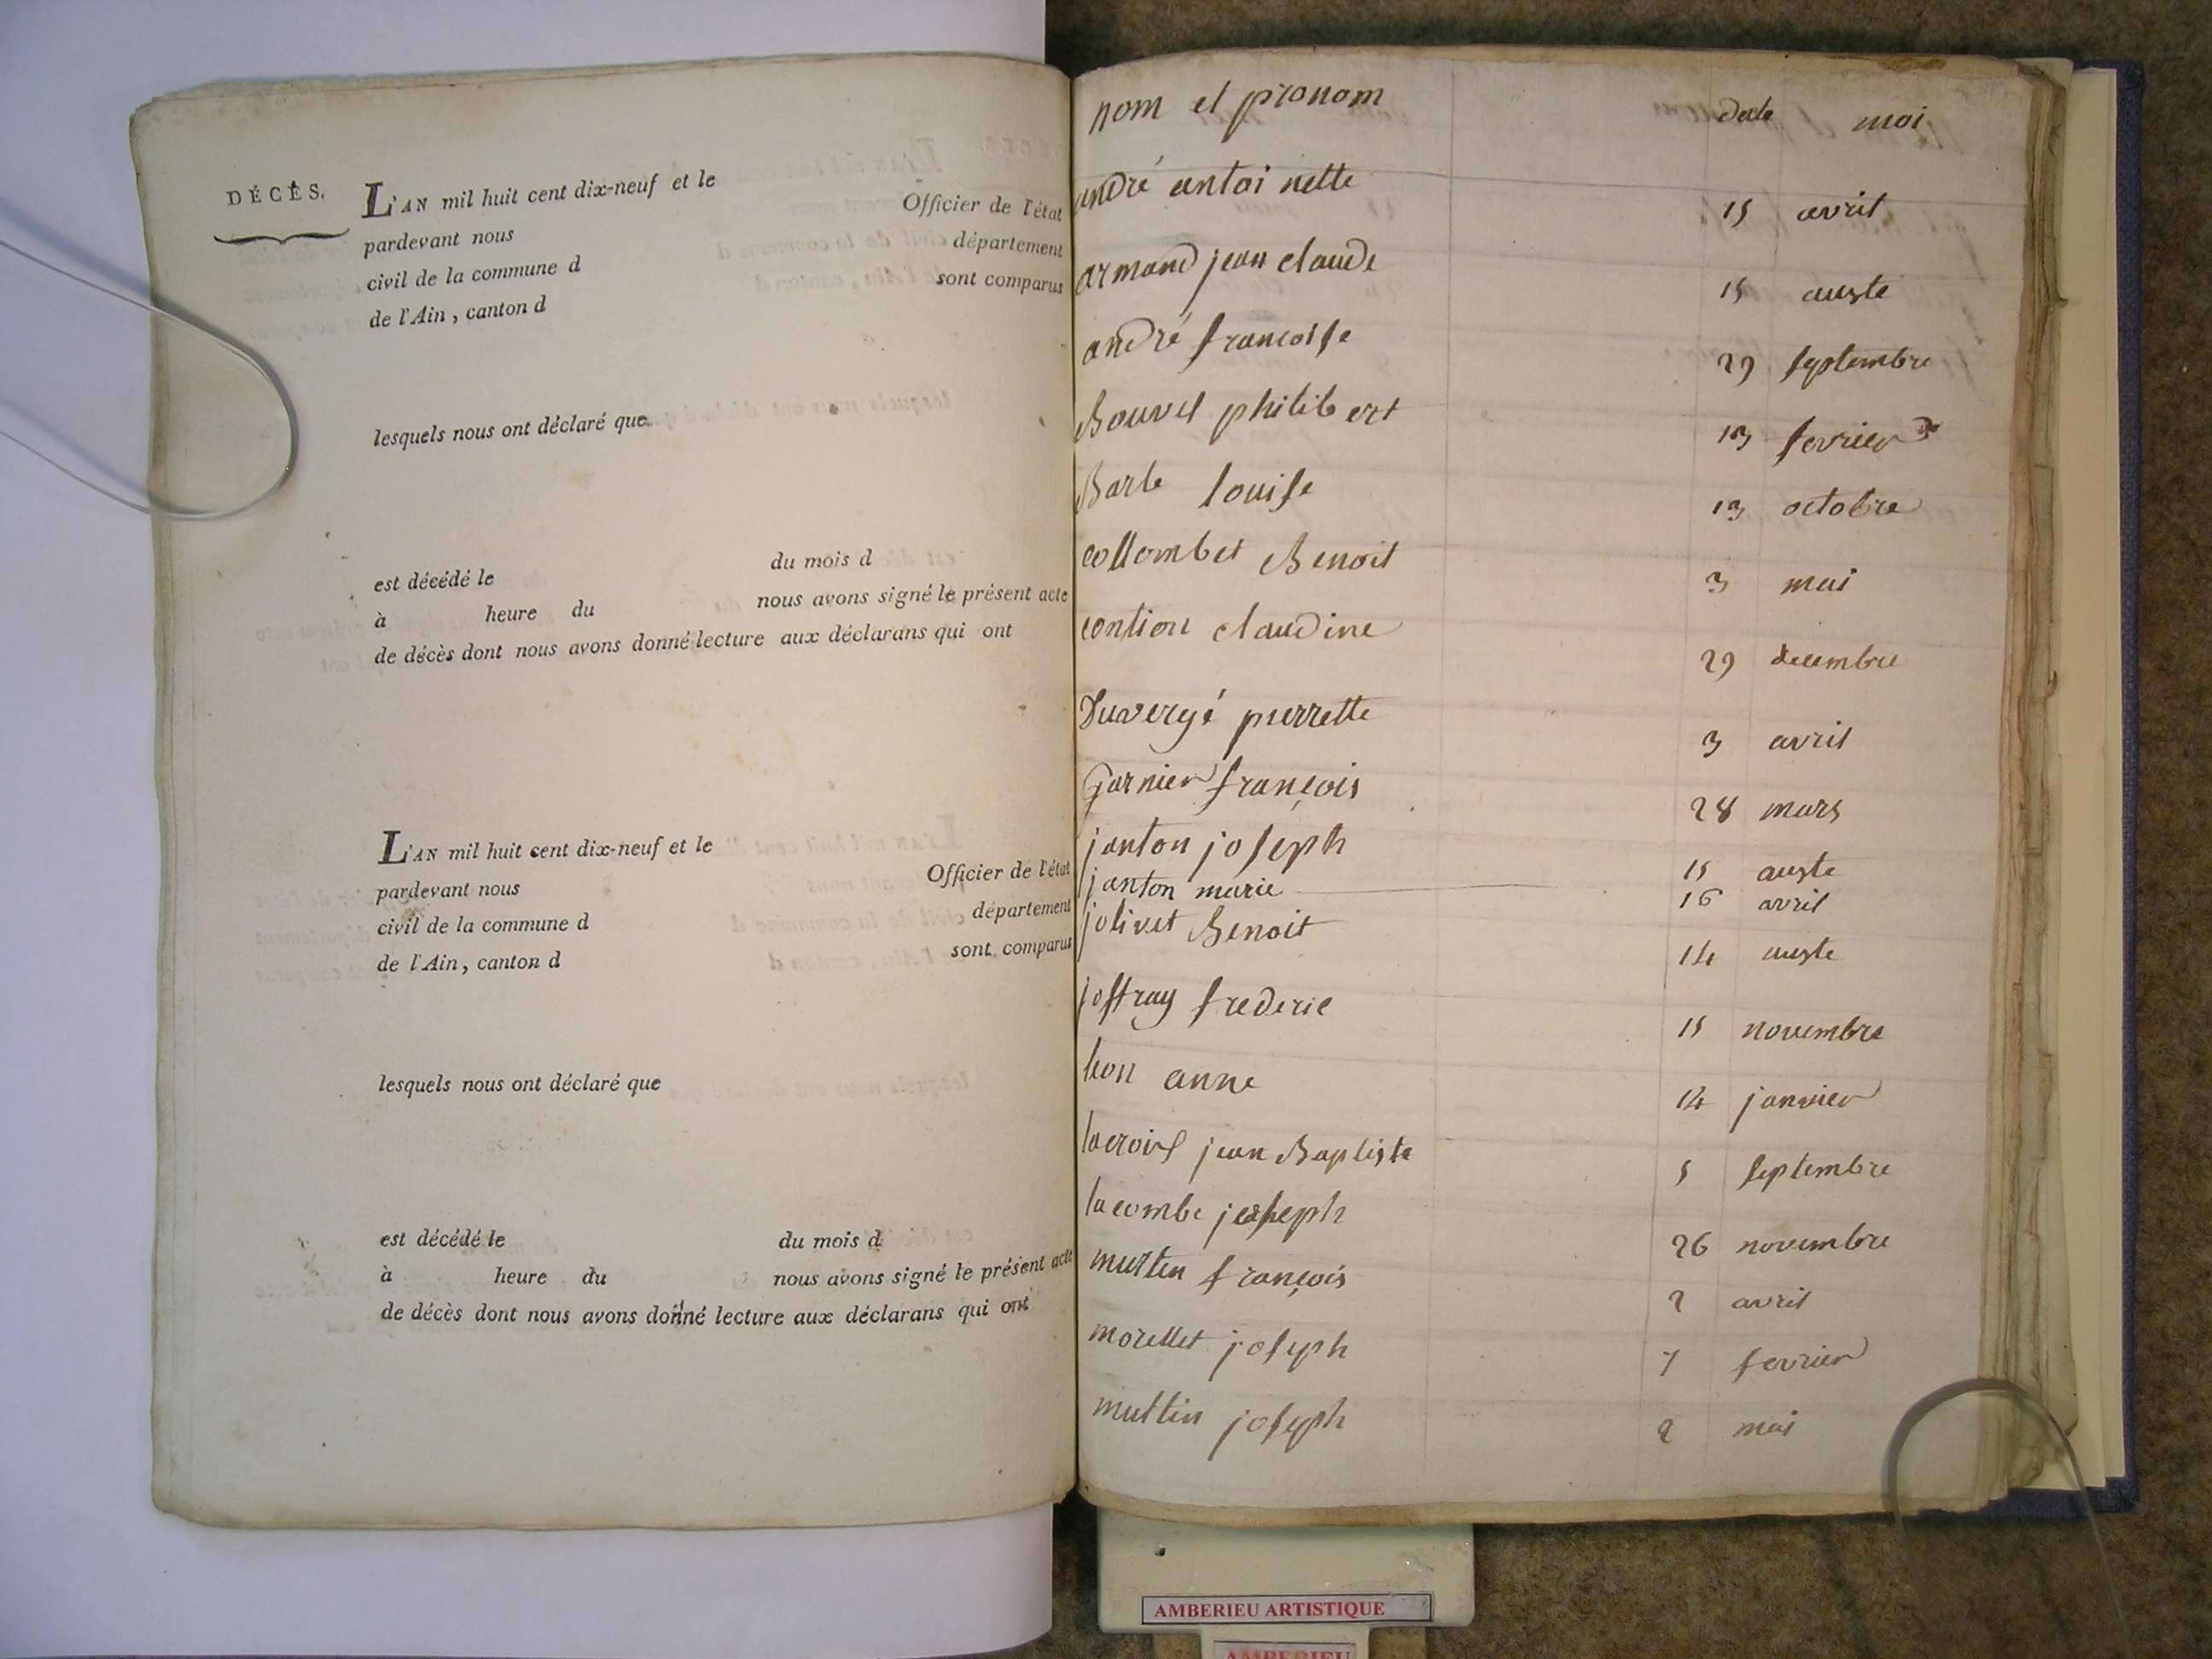 DÉCÈS.
L'AN mil huit cent dix-neuf et le
pardevant nous Officier de l'état
civil de la commune d département
de l'Ain, canton d sont comparus
lesquels nous ont déclaré que
est décédé le du mois d
à heure du nous avons signé le présent acte
de décès dont nous avons donné lecture aux déclarans qui ont
L'AN mil huit cent dix-neuf et le
pardevant nous Officier de l'état
civil de la commune d département
de l'Ain, canton d sont comparus
lesquels nous ont déclaré que
est décédé le du mois d
à heure du nous avons signé le présent acte
de décès dont nous avons donné lecture aux déclarans qui ont
nom et pronom date moi
andré antoinette 15 avril
armand jean claude 15 auste
andré francoise 29 septembre
Bouvel philibert 13 fevrier
Barbe louise 13 octobre
collombet Benoit 3 mai
contion claudine 29 decembre
Duvergé pierrette 3 avril
Garnier françois 28 mars
janton joseph 15 auste
janton marie 16 avril
jolivet Benoit 14 auste
joffray frederic 15 novembre
leon anne 14 janvier
lacroix jean Baptiste 5 septembre
lacombe joseph 26 novembre
murtin françois 2 avril
morellet joseph 7 fevrier
multin joseph 2 mai
AMBERIEU ARTISTIQUE
AMBERIEU